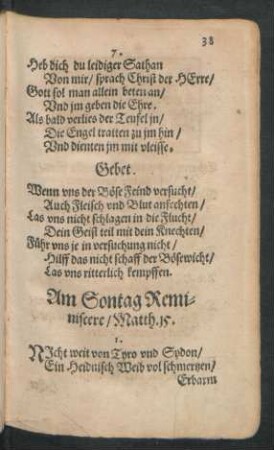 38
7.
Heb dich du leidiger Sathan
Von mir/ sprach Christ der HErre/
Gott sol man allein beten an/
Vnd jm geben die Ehre.
Als bald verlies der Teufel jn/
Die Engel tratten zu jm hin/
Vnd dienten jm mit vleisse.
Gebet.
Wenn vns der Böse Feind versucht/
Auch Fleisch vnd Blut anfechten/
Las vns nicht schlagen in die Flucht/
Dein Geist teil mit dein Knechten/
Führ vns je in versuchung nicht/
Hilff das nicht schaff der Bösewicht/
Las vns ritterlich kempffen.
Am Sontag Remi-
niscere/ Matth. 15.
1.
NIcht weit von Tyro vnd Sydon/
Ein Heidnisch Weib vol schmertzen/
Erbarm